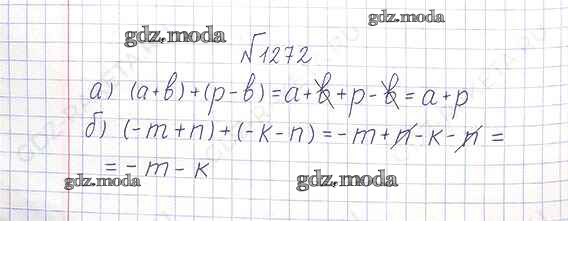 gdz.moda
gdz.moda
№1272
а) (a+b)+(p-b)=a+b+p-b=a+p
б) (-m+n)+(-k-n)=-m+n-k-n=
=-m-k
gdz.moda
gdz.moda